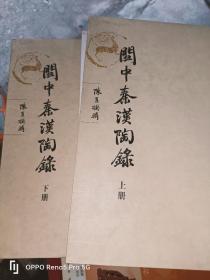 關中秦漢陶錄
陳直撰輯
上册
關中秦漢陶錄
陳直撰輯
下册
OPPO Reno5 Pro 5G